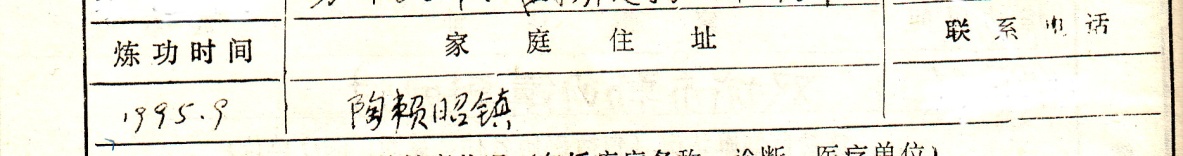 炼功时间 家庭住址 联系电话
1995.9 陶赖昭镇
诊断、医疗单位)